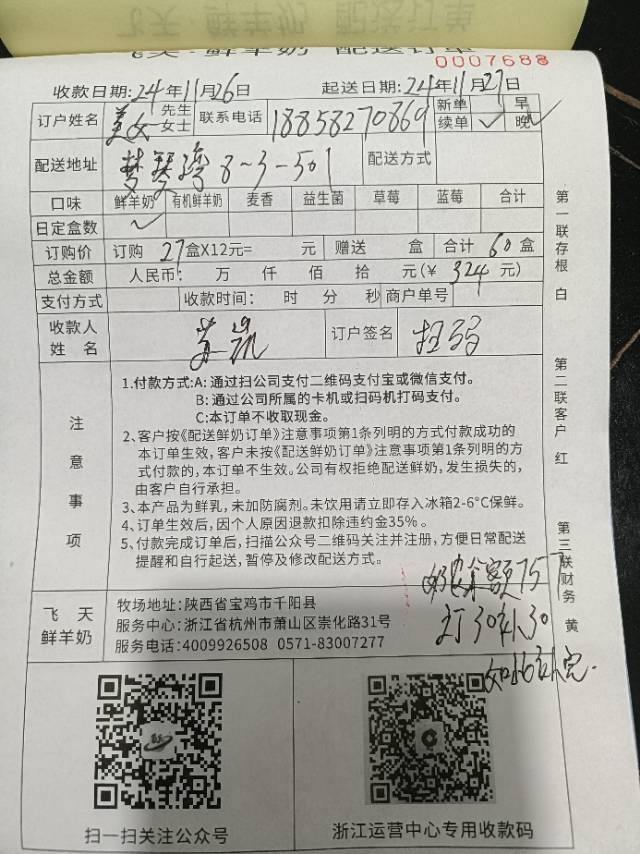 飞天·鲜羊奶 配送订单
0007688
收款日期:24年11月26日 起送日期:24年11月27日
订户姓名 美女 先生 女士 联系电话 18858270869 新单 续单✓ 早 晚✓
配送地址 梦琴湾8-3-501 配送方式
口味 鲜羊奶 有机鲜羊奶 麦香 益生菌 草莓 蓝莓 合计
日定盒数 ✓
订购价 订购 27盒X12元= 元 赠送 盒 合计 60盒
总金额 人民币: 万 仟 佰 拾 元(¥ 324 元)
支付方式 收款时间: 时 分 秒 商户单号
收款人姓名 订户签名 扫码
注意事项
1.付款方式:A: 通过扫公司支付二维码支付宝或微信支付。
B: 通过公司所属的卡机或扫码机打码支付。
C:本订单不收取现金。
2、客户按《配送鲜奶订单》注意事项第1条列明的方式付款成功的
本订单生效,客户未按《配送鲜奶订单》注意事项第1条列明的方
式付款的,本订单不生效。公司有权拒绝配送鲜奶,发生损失的,
由客户自行承担。
3、本产品为鲜乳,未加防腐剂。未饮用请立即存入冰箱2-6°C保鲜。
4、订单生效后,因个人原因退款扣除违约金35%。
5、付款完成订单后,扫描公众号二维码关注并注册,方便日常配送
提醒和自行起送,暂停及修改配送方式。
余额757
订30补30
飞天
鲜羊奶
牧场地址:陕西省宝鸡市千阳县
服务中心:浙江省杭州市萧山区崇化路31号
服务电话:4009926508 0571-83007277
扫一扫关注公众号
浙江运营中心专用收款码
第一联存根 白
第二联客户 红
第三联财务 黄